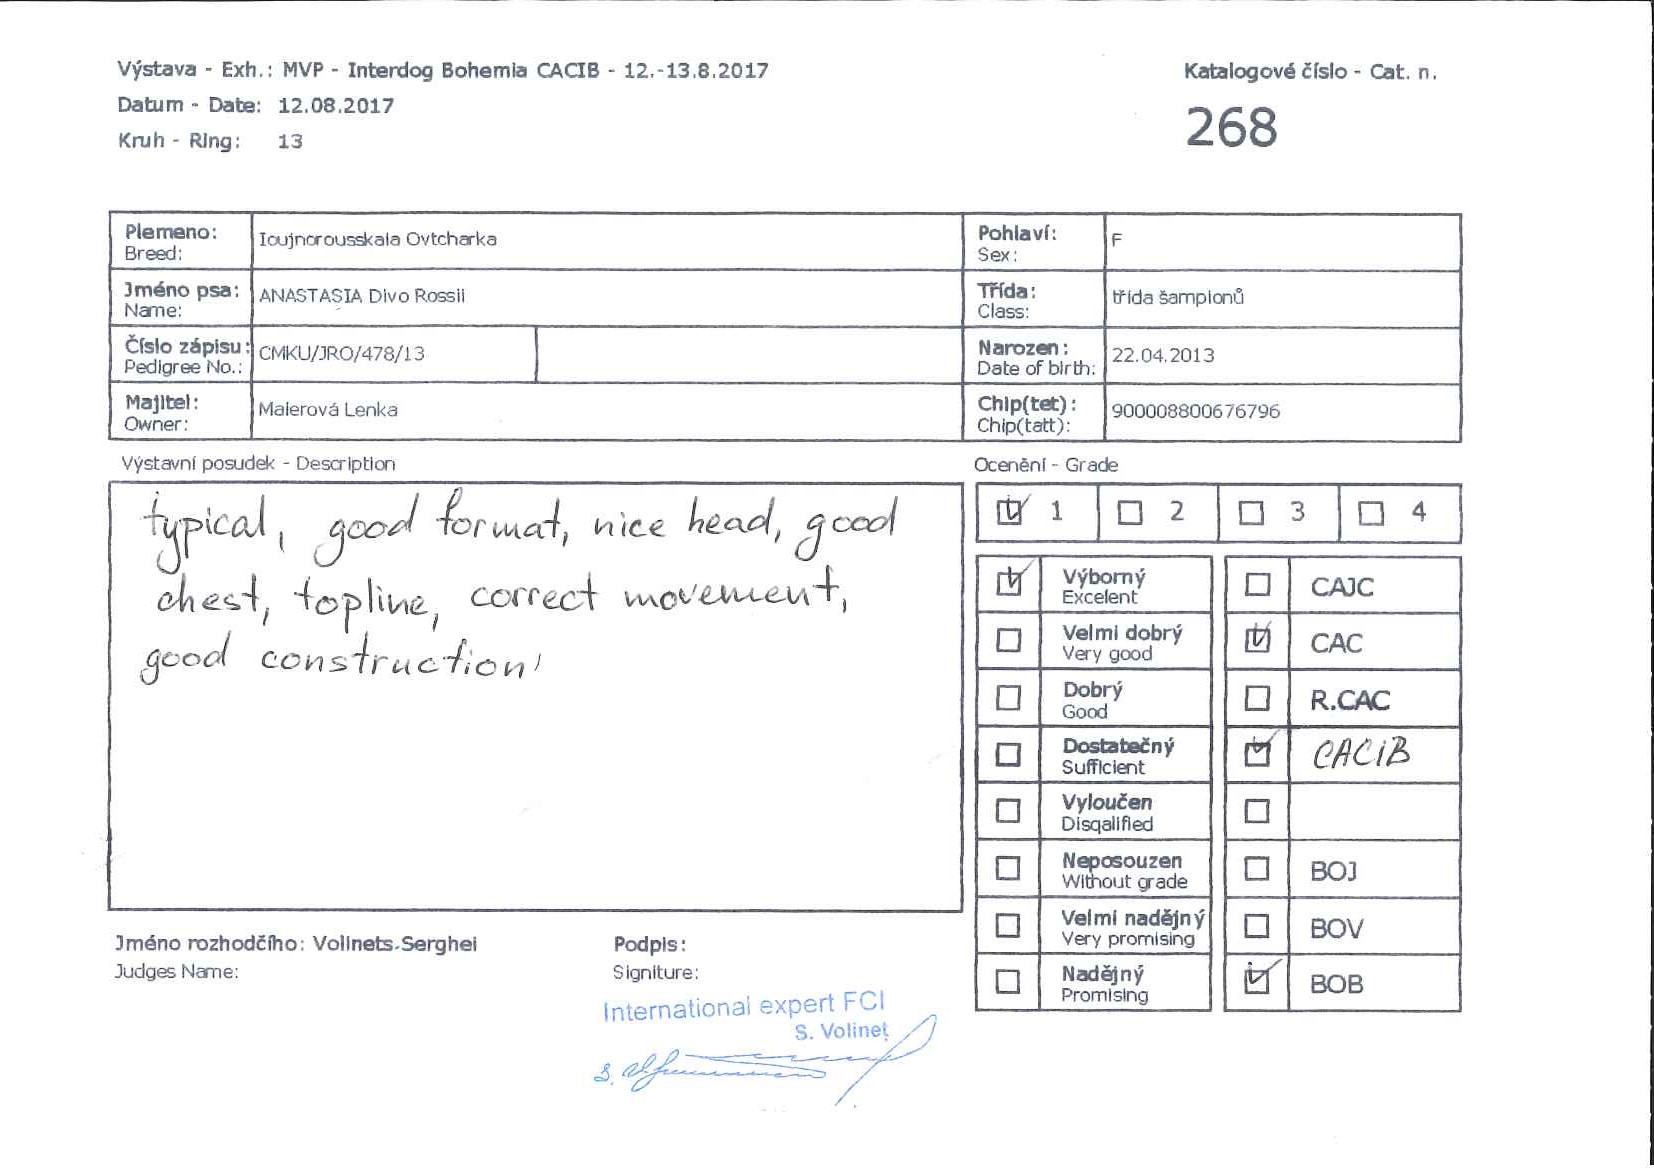 Výstava - Exh.: MVP - Interdog Bohemia CACIB - 12.-13.8.2017
Katalogové číslo - Cat. n.
Datum - Date: 12.08.2017
268
Kruh - Ring: 13
Plemeno: Ioujnorousskaia Ovtcharka Pohlaví: F
Breed: Sex:
Jméno psa: ANASTASIA Divo Rossii Třída: třída šampionů
Name: Class:
Číslo zápisu: CMKU/JRO/478/13 Narozen: 22.04.2013
Pedigree No.: Date of birth:
Majitel: Malerová Lenka Chip(tet): 900008800676796
Owner: Chip(tatt):
Výstavní posudek - Description
typical, good format, nice head, good
chest, topline, correct movement,
good construction,
Ocenění - Grade
1 2 3 4
Výborný CAJC
Excelent
Velmi dobrý CAC
Very good
Dobrý R.CAC
Good
Dostatečný CACiB
Sufficient
Vyloučen
Disqalified
Neposouzen BOJ
Without grade
Velmi nadějný BOV
Very promising
Nadějný BOB
Promising
Jméno rozhodčího: Volinets Serghei Podpis:
Judges Name: Signiture:
International expert FCI
S. Volineț